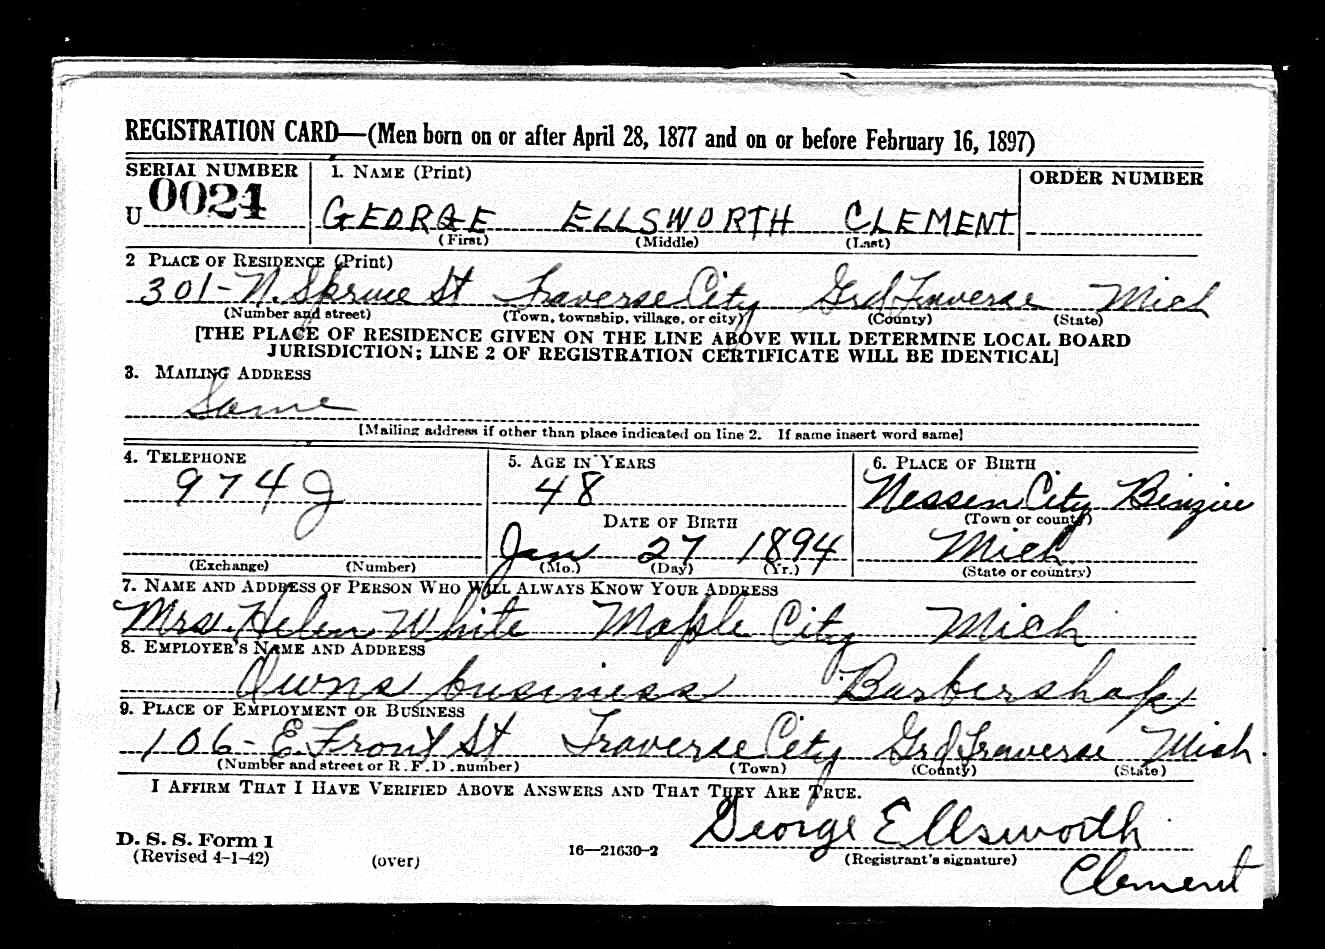 REGISTRATION CARD—(Men born on or after April 28, 1877 and on or before February 16, 1897)
SERIAL NUMBER 1. NAME (Print) ORDER NUMBER
U 0024 GEORGE ELLSWORTH CLEMENT
(First) (Middle) (Last)
2 PLACE OF RESIDENCE (Print)
301- N. Spruce St Traverse City Grd Traverse Mich
(Number and street) (Town, township, village, or city) (County) (State)
[THE PLACE OF RESIDENCE GIVEN ON THE LINE ABOVE WILL DETERMINE LOCAL BOARD
JURISDICTION; LINE 2 OF REGISTRATION CERTIFICATE WILL BE IDENTICAL]
3. MAILING ADDRESS
Same
[Mailing address if other than place indicated on line 2. If same insert word same]
4. TELEPHONE 5. AGE IN YEARS 6. PLACE OF BIRTH
974 J 48 Nessen City Benzie
DATE OF BIRTH (Town or county)
Jan 27 1894 Mich
(Exchange) (Number) (Mo.) (Day) (Yr.) (State or country)
7. NAME AND ADDRESS OF PERSON WHO WILL ALWAYS KNOW YOUR ADDRESS
Mrs. Helen White Maple City Mich
8. EMPLOYER'S NAME AND ADDRESS
Owns business Barbershop
9. PLACE OF EMPLOYMENT OR BUSINESS
106- E. Front St Traverse City Grd Traverse Mich.
(Number and street or R. F. D. number) (Town) (County) (State)
I AFFIRM THAT I HAVE VERIFIED ABOVE ANSWERS AND THAT THEY ARE TRUE.
George Ellsworth
D. S. S. Form 1
(Revised 4-1-42) (over) 16—21630-2 (Registrant's signature)
Clement